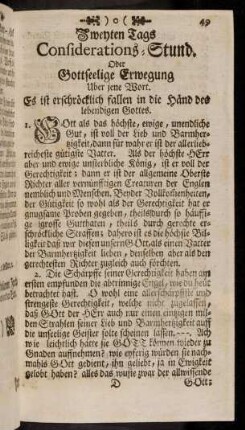 )o( 49
Zweyten Tags
Considerations-Stund.
Oder
Gottseelige Erwegung
Uber jene Wort.
Es ist erschröcklich fallen in die Händ des
lebendigen Gottes.
1. GOtt als das höchste, ewige, unendliche
Gut, ist voll der Lieb und Barmher-
tzigkeit, dann für wahr er ist der allerlieb-
reicheste gütigste Vatter. Als der höchste HErr
aber und ewige unsterbliche König, ist er voll der
Gerechtigkeit; dann er ist der allgemeine Oberste
Richter aller vernünfftigen Creaturen der Englen
nemblich und Menschen. Beyder Vollkommenheiten,
der Gütigkeit so wohl als der Gerechtigkeit hat er
gnugsame Proben gegeben, theils durch so häuffi-
ge grosse Gutthaten / theils durch gerechte er-
schröckliche Straffen; dahero ist es die höchste Bil-
ligkeit daß wir diesen unsern GOtt, als einen Vatter
der Barmhertzigkeit lieben, denselben aber als den
gerechtesten Richter zugleich auch förchten.
2. Die Schärpffe seiner Gerechtigkeit haben am
ersten empfunden die abtrinnige Engel, wie du heut
betrachtet hast. O wohl eine allerschärpffiste und
strengeste Gerechtigkeit, welche nicht zugelassen,
daß GOtt der HErr auch nur einen eintzigen mil-
den Strahlen seiner Lieb und Barmhertzigkeit auf
die unseelige Geister solte scheinen lassen. --- Ach
wie leichtlich hätte sie GOTT können wieder zu
Gnaden aufnehmen? wie eyferig wurden sie nach-
mahls GOtt gedient, ihn geliebt, ja in Ewigkeit
gelobt haben? alles das wuste zwar der allwissende
D GOtt: